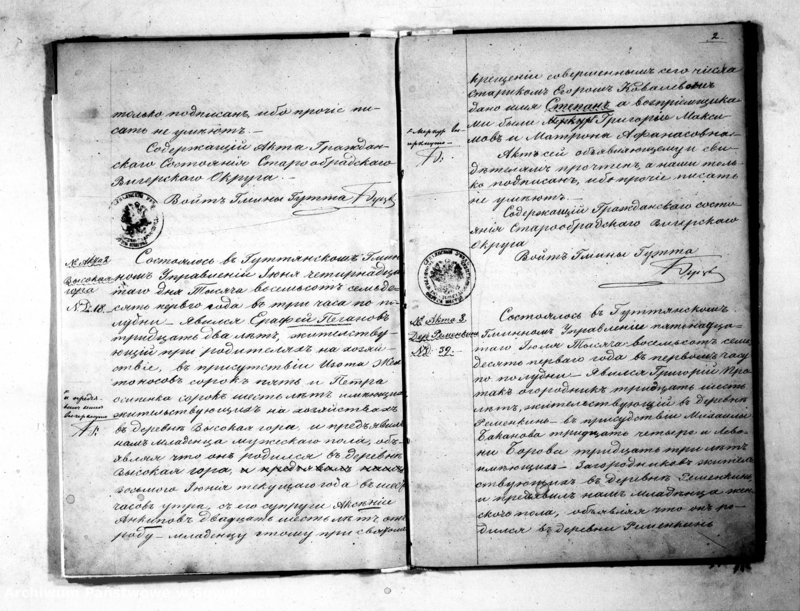 только подписан, ибо прочіе пи-
сать не умѣютъ.—
Содержащій Акта Граждан-
скаго Состоянія Старообрадскаго
Вигерскаго Округа.—
Войтъ Гмины Гутта
№ Акто 2
Высокая
гора
№ Д. 18.
Состоялось въ Гуттянскомъ Гмин
номъ Управленіи Іюня четырнадца
таго дня Тысяча восемьсотъ семьде
сять перваго года въ три часа по по
лудни — явился Ерафей Пегановъ
тридцать два лѣтъ, жительству-
ющій при родителяхъ на хозяй
ствіе, въ присутствіи
сорокъ пять и Петра
сорокъ шесть лѣтъ имеющихъ
жительствующихъ на хозяйствахъ
въ деревнѣ Высокая гора, и предъявилъ
намъ младенца мужескаго пола, объ
являя что онъ родился въ деревнѣ
Высокая гора,
восьмого Іюня текущаго года въ шесть
часовъ утра, съ его супруги Аксеніи
Анкиповъ двадцать шесть лѣтъ отъ
роду — младенцу этому при святомъ
2.
крещеніи совершенымъ сего числа
Старикомъ Егоромъ Ковалевымъ
дано имя Степанъ а воспріемщика
ми были Григорій Макси
мовъ и Матрона Афанасовна.
Актъ сей объявляющему и сви
дѣтелямъ прочтенъ, а нами толь
ко подписанъ, ибо прочіе писать
не умѣютъ.
Содержащій Гражданскаго состо
янія Старообрадскаго Вигерскаго
Округа
Войтъ Гмины Гутта
№ Акто 3.
№ Д. 39.
Состоялось въ Гуттянскомъ
Гминномъ Управленіе пятнадца-
таго Іюля Тысяча восемьсотъ семь
десять перваго года въ первомъ часу
по полудни — явился Григорій Про
такъ огородникъ тридцать шесть
лѣтъ, жительствующій въ деревнѣ
Ременкинъ — въ присудствіи Михаила
Баканова тридцать четыре и Лево
на Борова тридцать три лѣтъ
имѣющихъ — Загородниковъ жител
ствующихъ въ деревнѣ Ременкинъ,
и предявилъ намъ младенца жен
скаго пола, объявляя что онъ ро-
дился въ деревни Ременкинъ
Archiwum Państwowe w Suwałkach